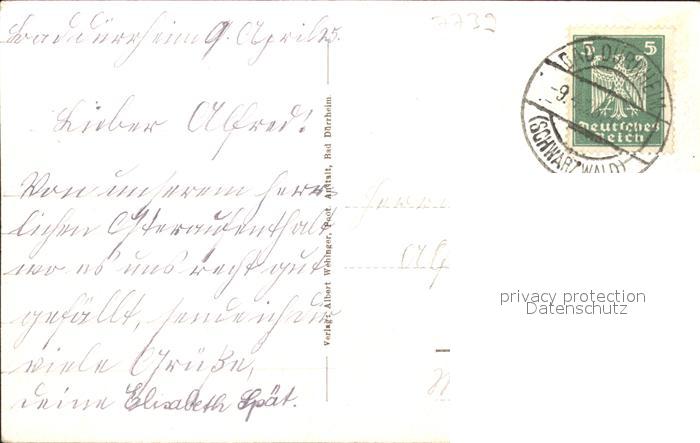 7732
Baddürrheim 9. April 25.
5 5
Deutsches
Reich
BAD DÜRRHEIM
-9.
(SCHWARZWALD)
Lieber Alfred!
Von unserem herr-
lichen Osteraufenthalt
wo es uns recht gut
gefällt, sende ich dir
viele Grüße,
deine Elisabeth Spät.
Verlag: Albert Wehinger, Phot. Anstalt, Bad Dürrheim.
Herrn
privacy protection
Datenschutz